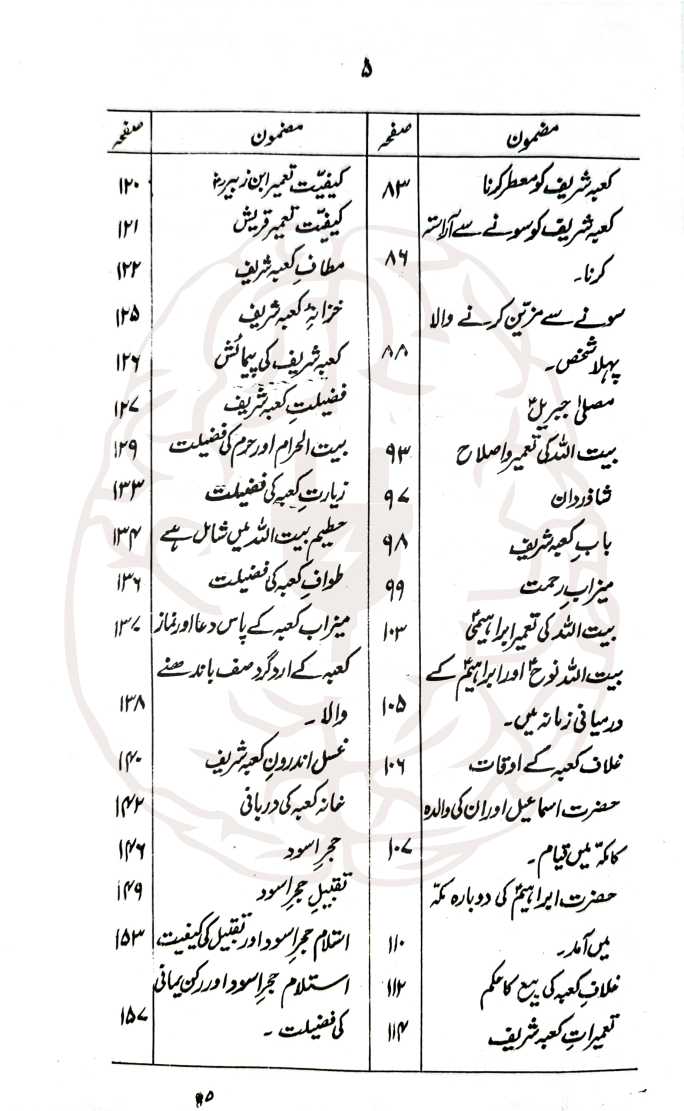 ۵
مضمون صفحہ
کعبہ شریف کو معطر کرنا ۸۳
کعبہ شریف کو سونے سے آراستہ
کرنا۔ ۸۶
سونے سے مزیّن کرنے والا
پہلا شخص۔ ۸۸
مصلیٰ جبریلؑ
بیت اللہ کی تعمیر و اصلاح ۹۳
شاذردان ۹۷
بابِ کعبہ شریف ۹۸
میزابِ رحمت ۹۹
بیت اللہ کی تعمیر ابراہیمیؑ ۱۰۳
بیت اللہ نوحؑ اور ابراہیمؑ کے
درمیانی زمانہ میں۔ ۱۰۵
غلاف کعبہ کے اوقات ۱۰۶
حضرت اسماعیل اور ان کی والدہ
کا مکہ میں قیام۔ ۱۰۷
حضرت ابراہیمؑ کی دوبارہ مکّہ
میں آمد۔ ۱۱۰
غلافِ کعبہ کی بیع کا حکم ۱۱۲
تعمیراتِ کعبہ شریف ۱۱۴
مضمون صفحہ
کیفیّت تعمیر ابن زبیرؓ ۱۲۰
کیفیّت تعمیر قریش ۱۲۱
مطافِ کعبہ شریف ۱۲۲
خزانۂ کعبہ شریف ۱۲۵
کعبہ شریف کی پیمائش ۱۲۶
فضیلتِ کعبہ شریف ۱۲۷
بیت الحرام اور حرم کی فضیلت ۱۲۹
زیارتِ کعبہ کی فضیلت ۱۳۳
حطیم بیت اللہ میں شامل ہے ۱۳۴
طوافِ کعبہ کی فضیلت ۱۳۶
میزاب کعبہ کے پاس دعا اور نماز ۱۳۷
کعبہ کے ارد گرد صف باندھنے
والا۔ ۱۳۸
غسل اندرونِ کعبہ شریف ۱۴۰
خانہ کعبہ کی دربانی ۱۴۲
حجرِ اسود ۱۴۶
تقبیلِ حجرِ اسود ۱۴۹
استلام حجرِ اسود اور تقبیل کی کیفیت ۱۵۳
استلام حجرِ اسود اور رکن یمانی
کی فضیلت۔ ۱۵۷